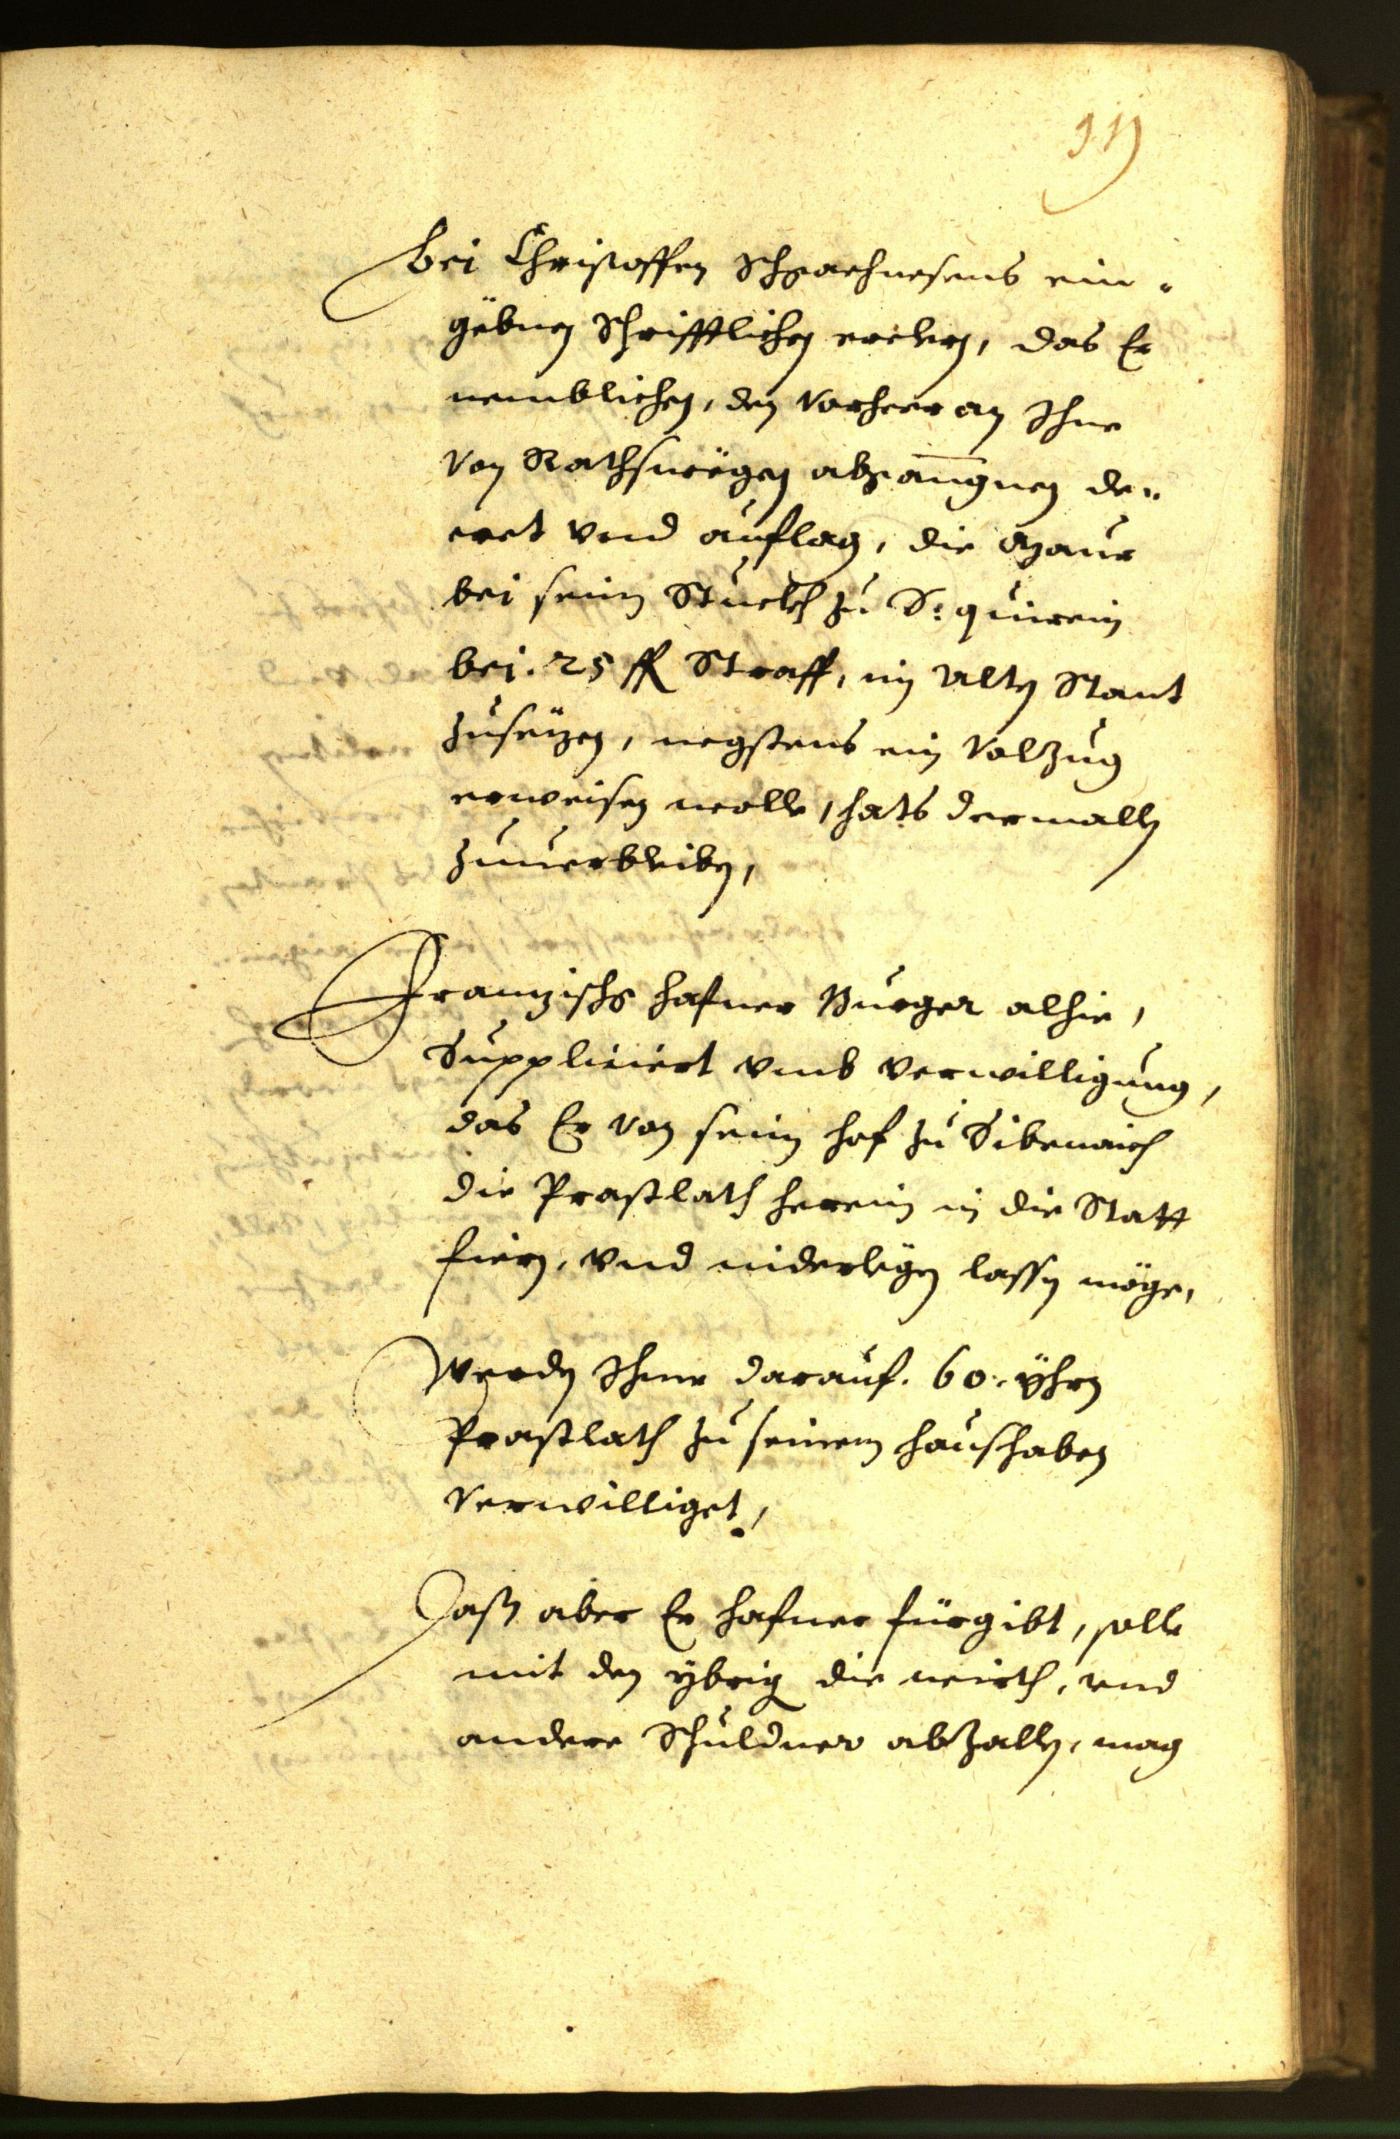 Bei Christoffen ein-
gebnen Schrifftlichen das Er
nemblichen, den Vorheer an Ihne
Von Rathswegen abgangnen de-
cret vnd auflag, die Maur
bei seim Stuckh zu S: quirein
bei . 25 fl Straff, im Alten Stant
zusezen, negstens ein Volzug
erweisen wolle, hats dermallen
zuuerbleiben,
Franzisch Hafner Burger alhie,
Suppliciert vmb verwilligung,
das Er von seim hof zu Sibenaich
die Praßlath herein in die Statt
fiern, vnd niderlegen lassen möge,
Werden Ihme darauf . 60 . Yhrn
Praßlath zu seinem haushaben
Verwilliget,
Daß aber Er Hafner fürgibt, solle
mit den ybrig die wirth, vnd
andere Schuldner abzallen, mag